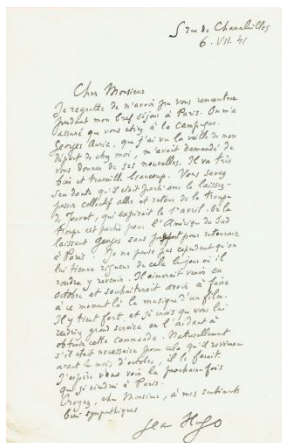 5 rue de Chanaleilles
6. VII. 41
Cher Monsieur
Je regrette de n'avoir pu vous rencontrer
pendant mon bref séjour à Paris. On m'a
assuré que vous étiez à la campagne.
Georges Auric, que j'ai vu la veille de mon
départ de chez moi, m'avait demandé de
vous donner de ses nouvelles. Il va très
bien et travaille beaucoup. Vous savez
sans doute qu'il était parti avec le laissez-
passer collectif aller et retour de la troupe
de Jouvet, qui expirait le 1er avril. Or la
troupe est partie pour l'Amérique du Sud
laissant Georges sans pour retourner
à Paris. Je ne pense pas cependant qu'on
lui tienne rigueur de cela le jour où il
voudra y revenir. Il aimerait venir en
octobre et souhaiterait avoir à faire
à ce moment là la musique d'un film.
Il y tient fort, et je crois que vous lui
rendriez grand service en l'aidant à
obtenir cette commande. Naturellement
s'il était nécessaire pour cela qu'il revienne
avant le mois d'octobre, il le ferait.
J'espère vous voir la prochaine fois
que je viendrai à Paris.
Croyez, cher Monsieur, à mes sentiments
bien sympathiques
Jean Hugo